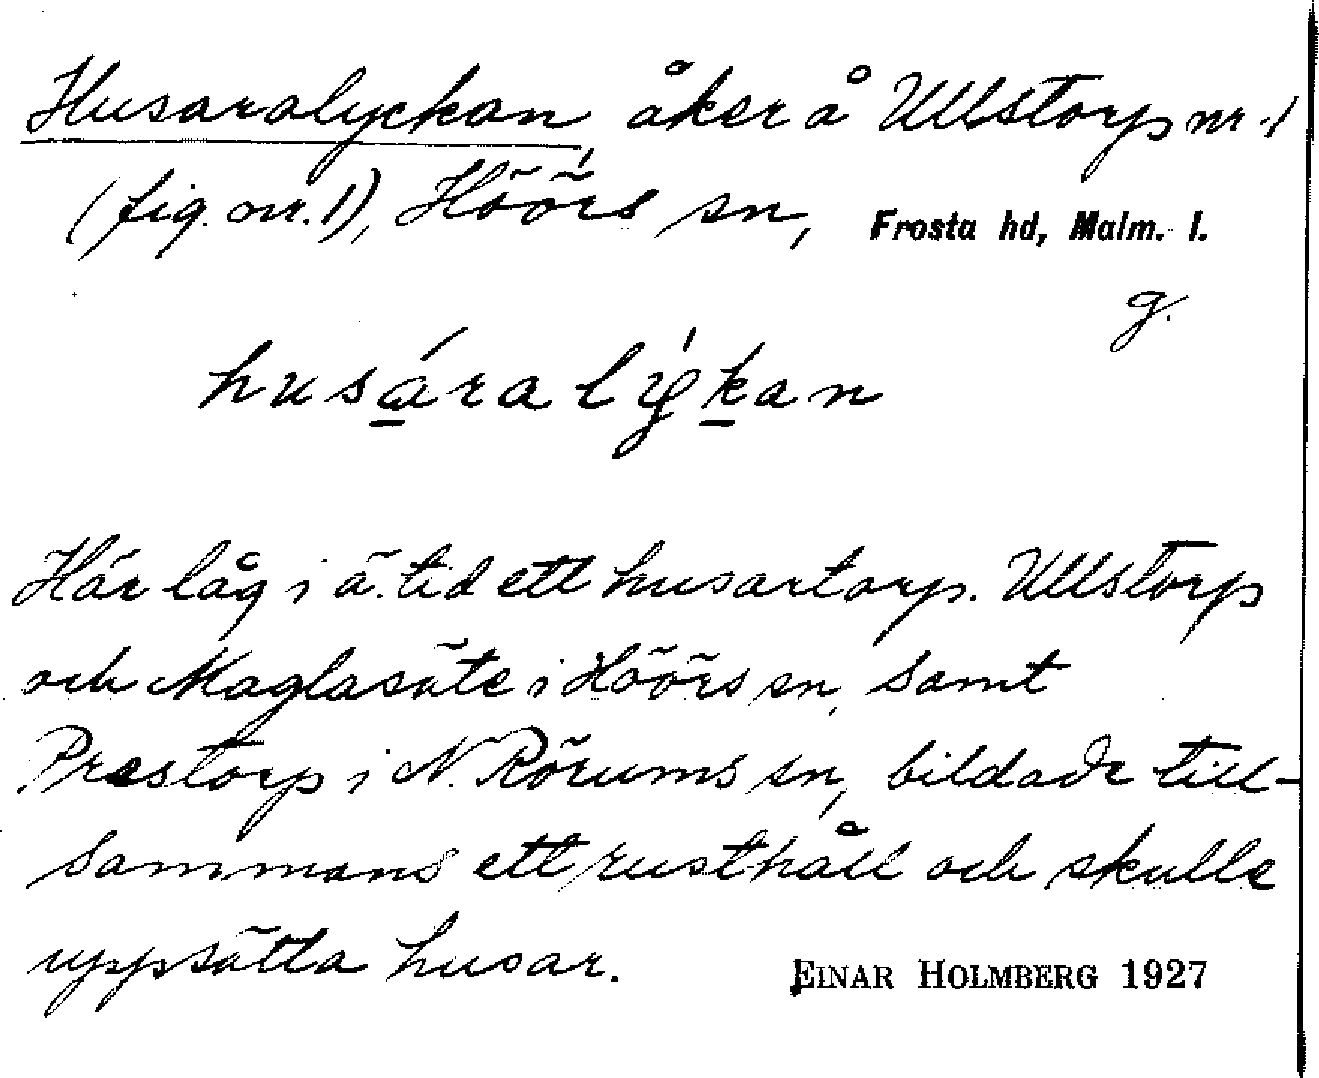 Husaralyckan, åker å Ullstorp nr 1
(fig. nr. 1), Höörs sn, Frosta hd, Malm. l.
g.
husáralýkan
Här låg i ä. tid ett husartorp. Ullstorp
och Maglasäte i Höörs sn, samt
Prestorp i N. Rörums sn, bildade till-
sammans ett rusthåll och skulle
uppsätta husar.
EINAR HOLMBERG 1927